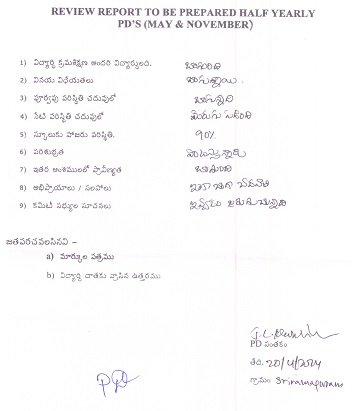 REVIEW REPORT TO BE PREPARED HALF YEARLY
PD'S (MAY & NOVEMBER)
1) విద్యార్థి క్రమశిక్షణ అందరి విద్యార్థులది. బాగుంది
2) వినయ విధేయతలు బాగున్నాయి.
3) పూర్వపు పరిస్థితి చదువులో బాగున్నది
4) నేటి పరిస్థితి చదువులో మెరుగు పడింది
5) స్కూలుకు హాజరు పరిస్థితి. 90%
6) పరిశుభ్రత
7) ఇతర అంశములలో ప్రావీణ్యత బాగుంది
8) అభిప్రాయాలు / సలహాలు ఇంకా బాగా చదవాలి
9) కమిటి సభ్యుల సూచనలు
జతపరచవలసినవి –
a) మార్కుల పత్రము
b) విద్యార్థి దాతకు వ్రాసిన ఉత్తరము
PD సంతకం
తేది. 20/4/2024
గ్రామం Sriramapuram